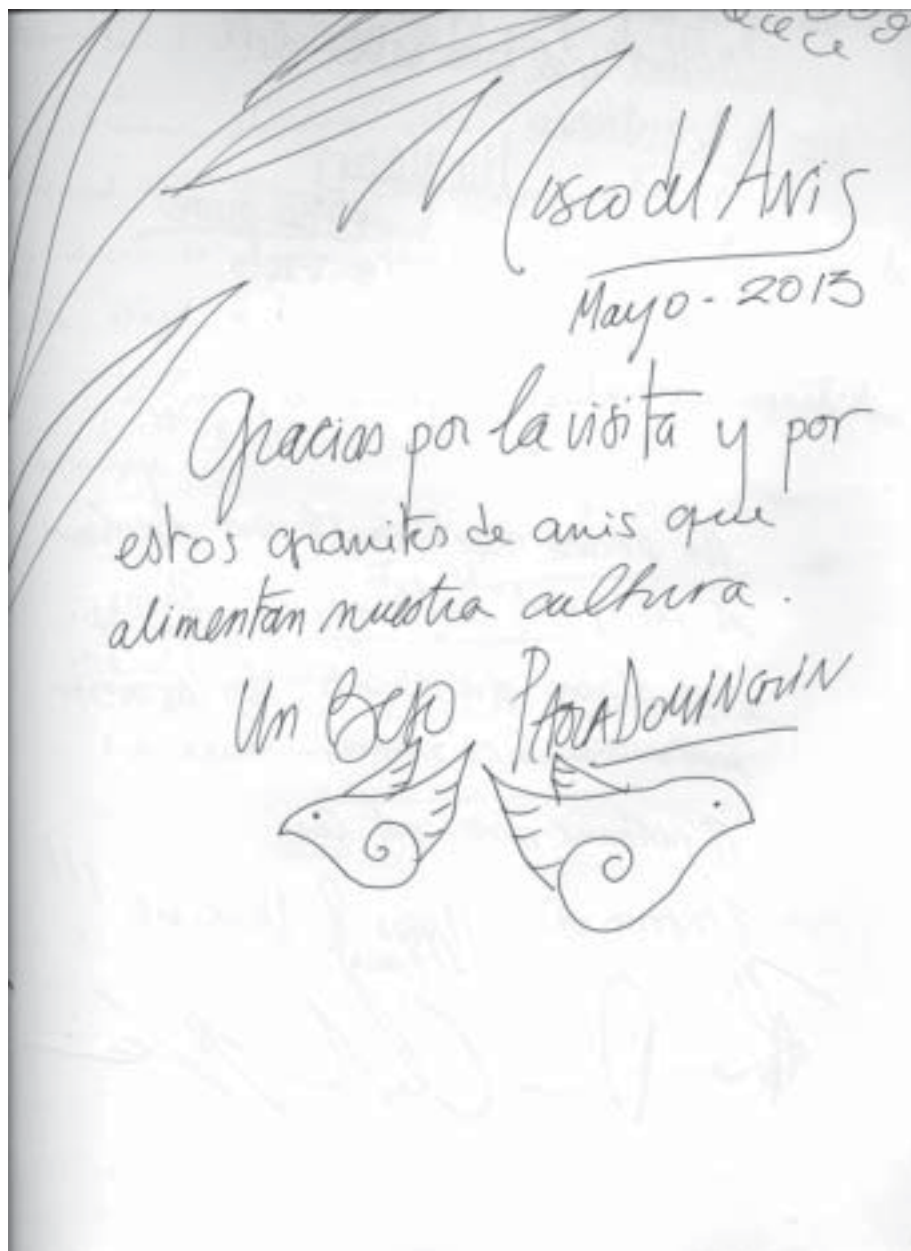 Museo del Anis
Mayo - 2013
Gracias por la visita y por
estos granitos de anis que
alimentan nuestra cultura.
Un Beso PAOLA DOMINGUIN